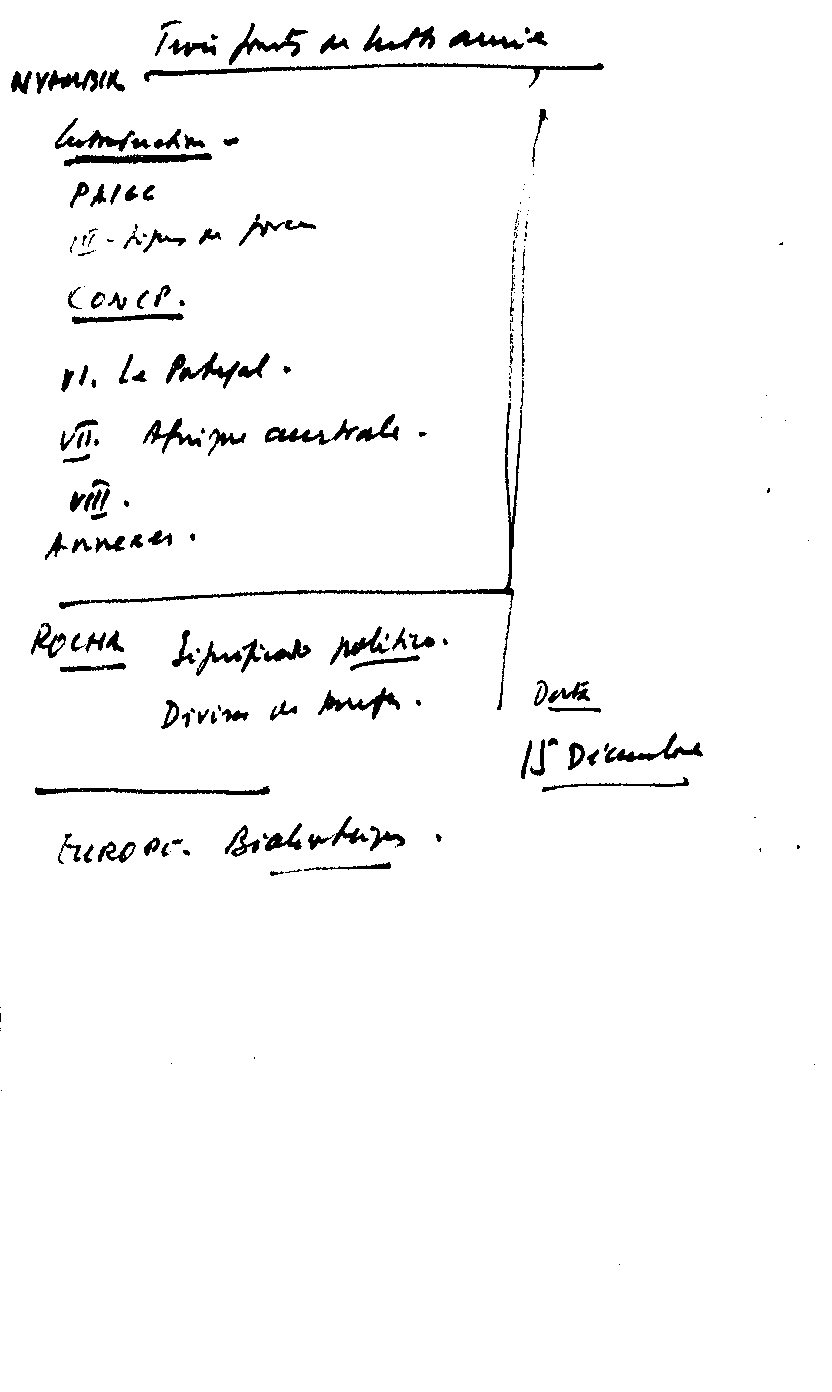 Trois fronts de lutte armée
NYAMBIR
Introduction -
PAIGC
III - types de forces
CONCP.
VI. Le Portugal.
VII. Afrique australe.
VIII.
Annexes.
ROCHA Significado político.
Divisão de tarefas.
Data
15 Décembre
EUROPE.